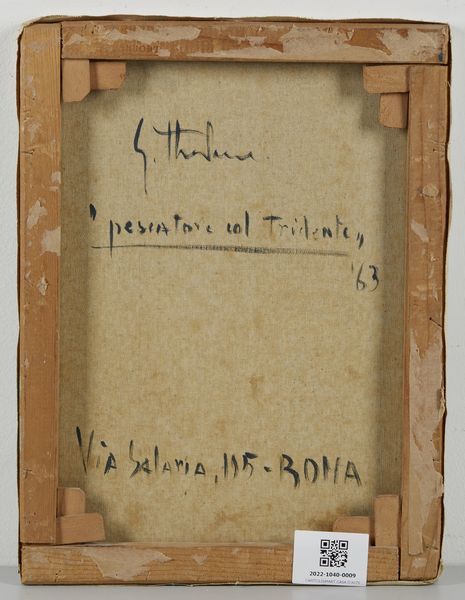 G.
"pescatore col Tridente„
'63
Via Salaria, 115 - ROMA
2022-1040-0009